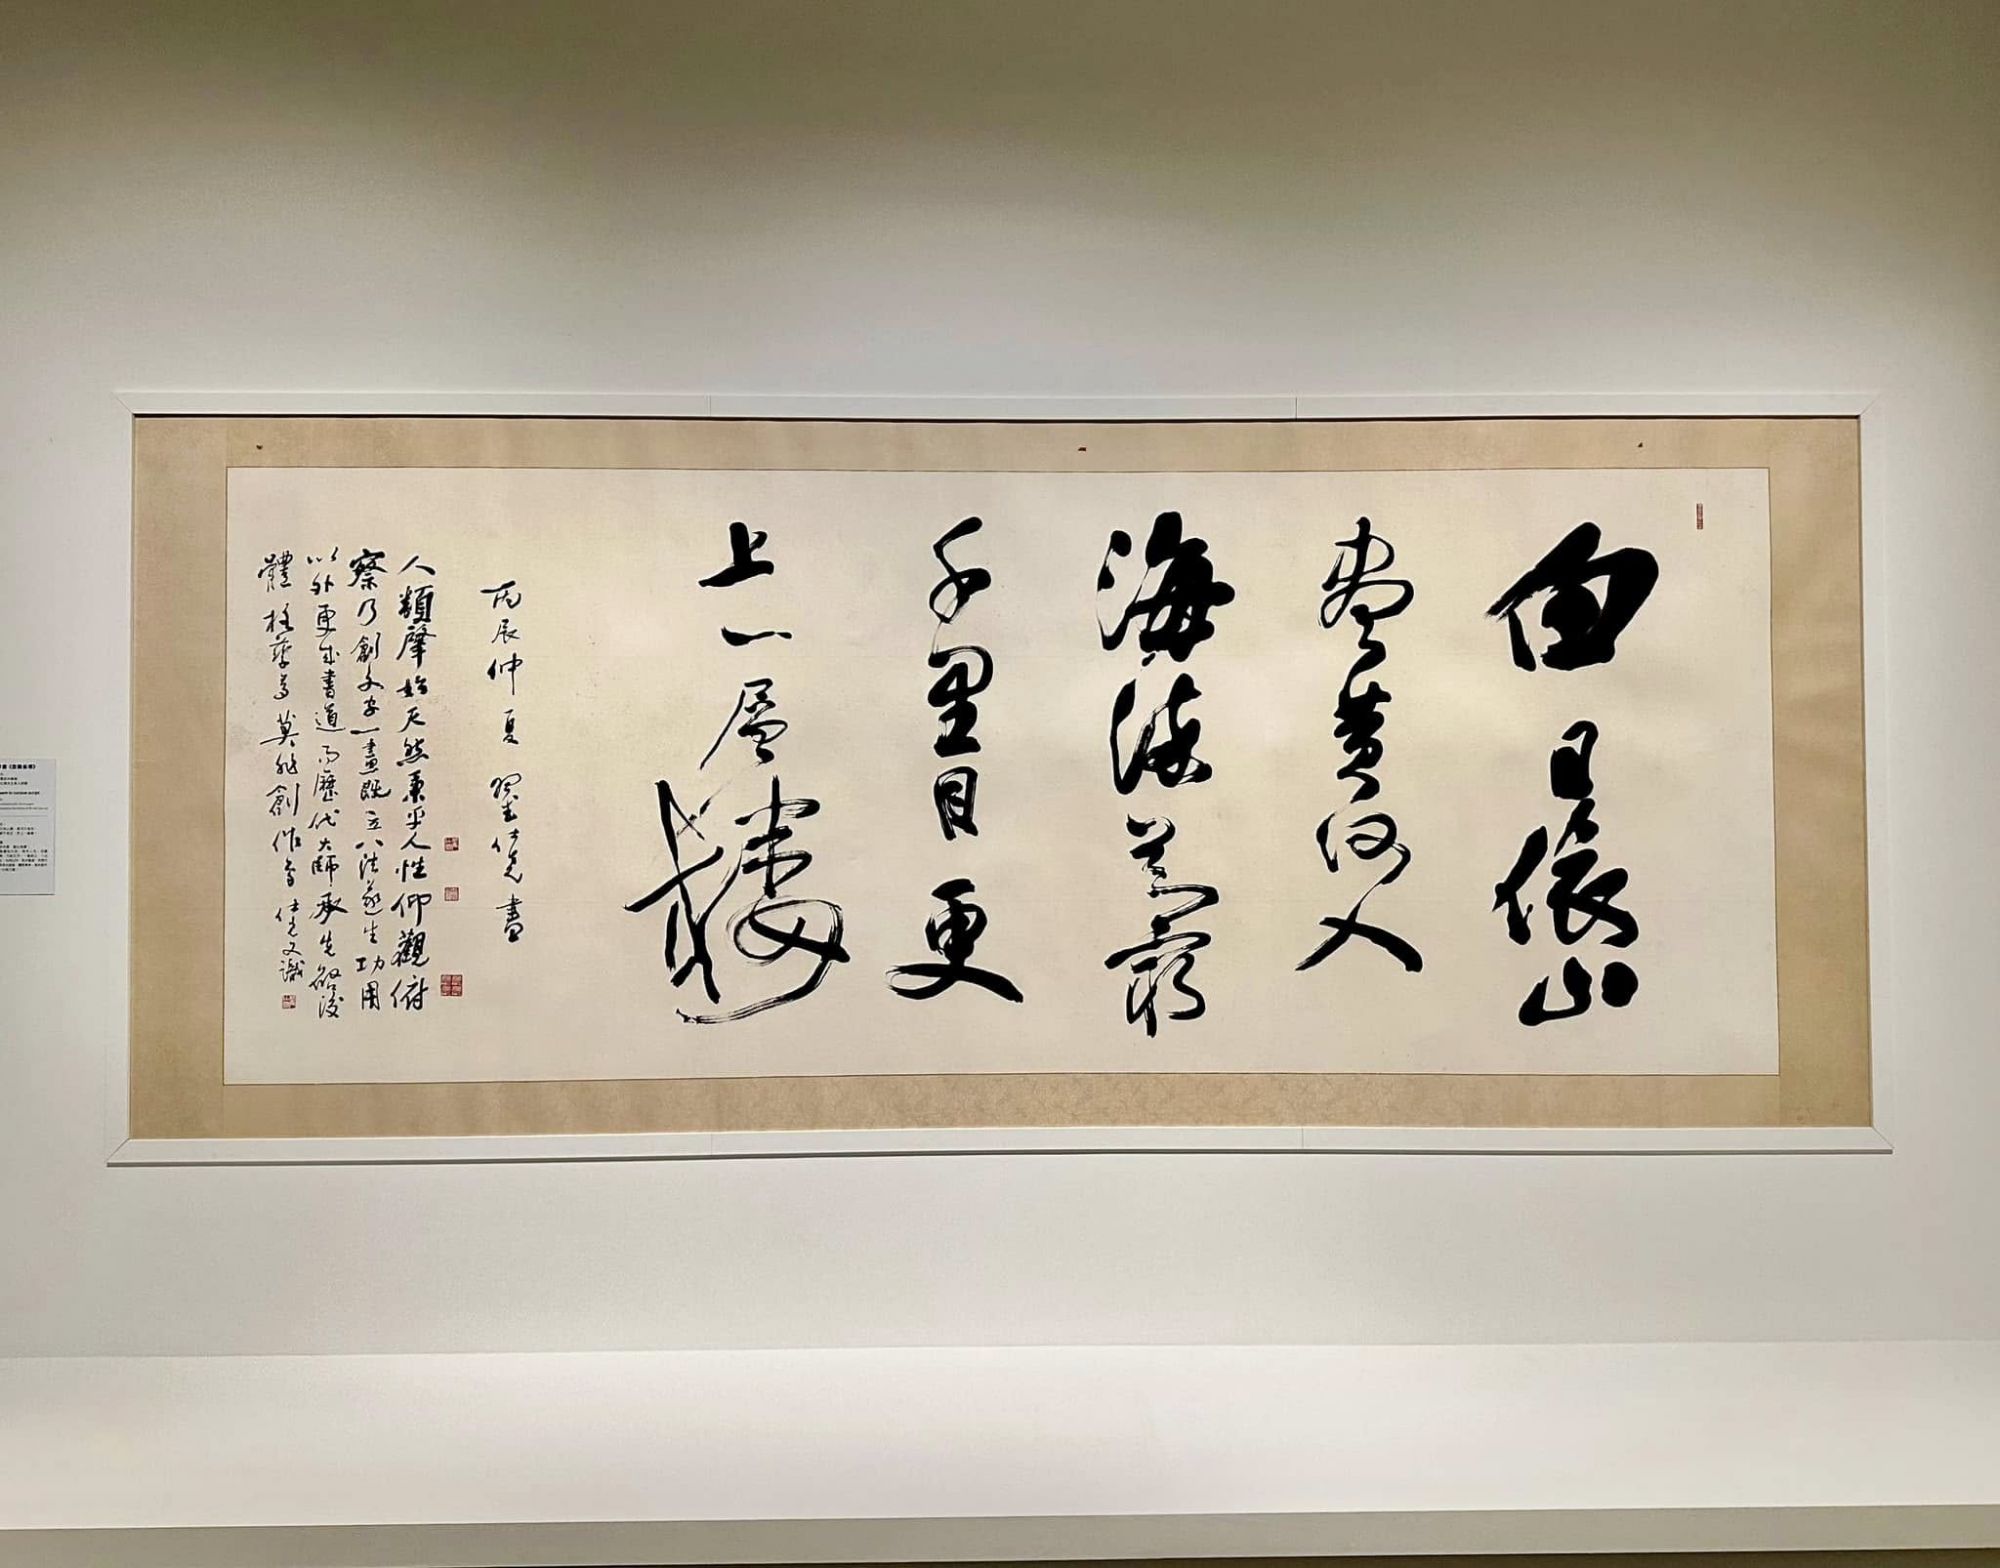 白日依山
盡黃河入
海流欲窮
千里目更
上一層樓
丙辰仲夏 翟仕堯書
人類肇始天然秉乎人性仰觀俯
察乃創文字一畫既立八法生功用
以外更成書道而歷代大師承先啟後
體莫非創作 仕堯又識